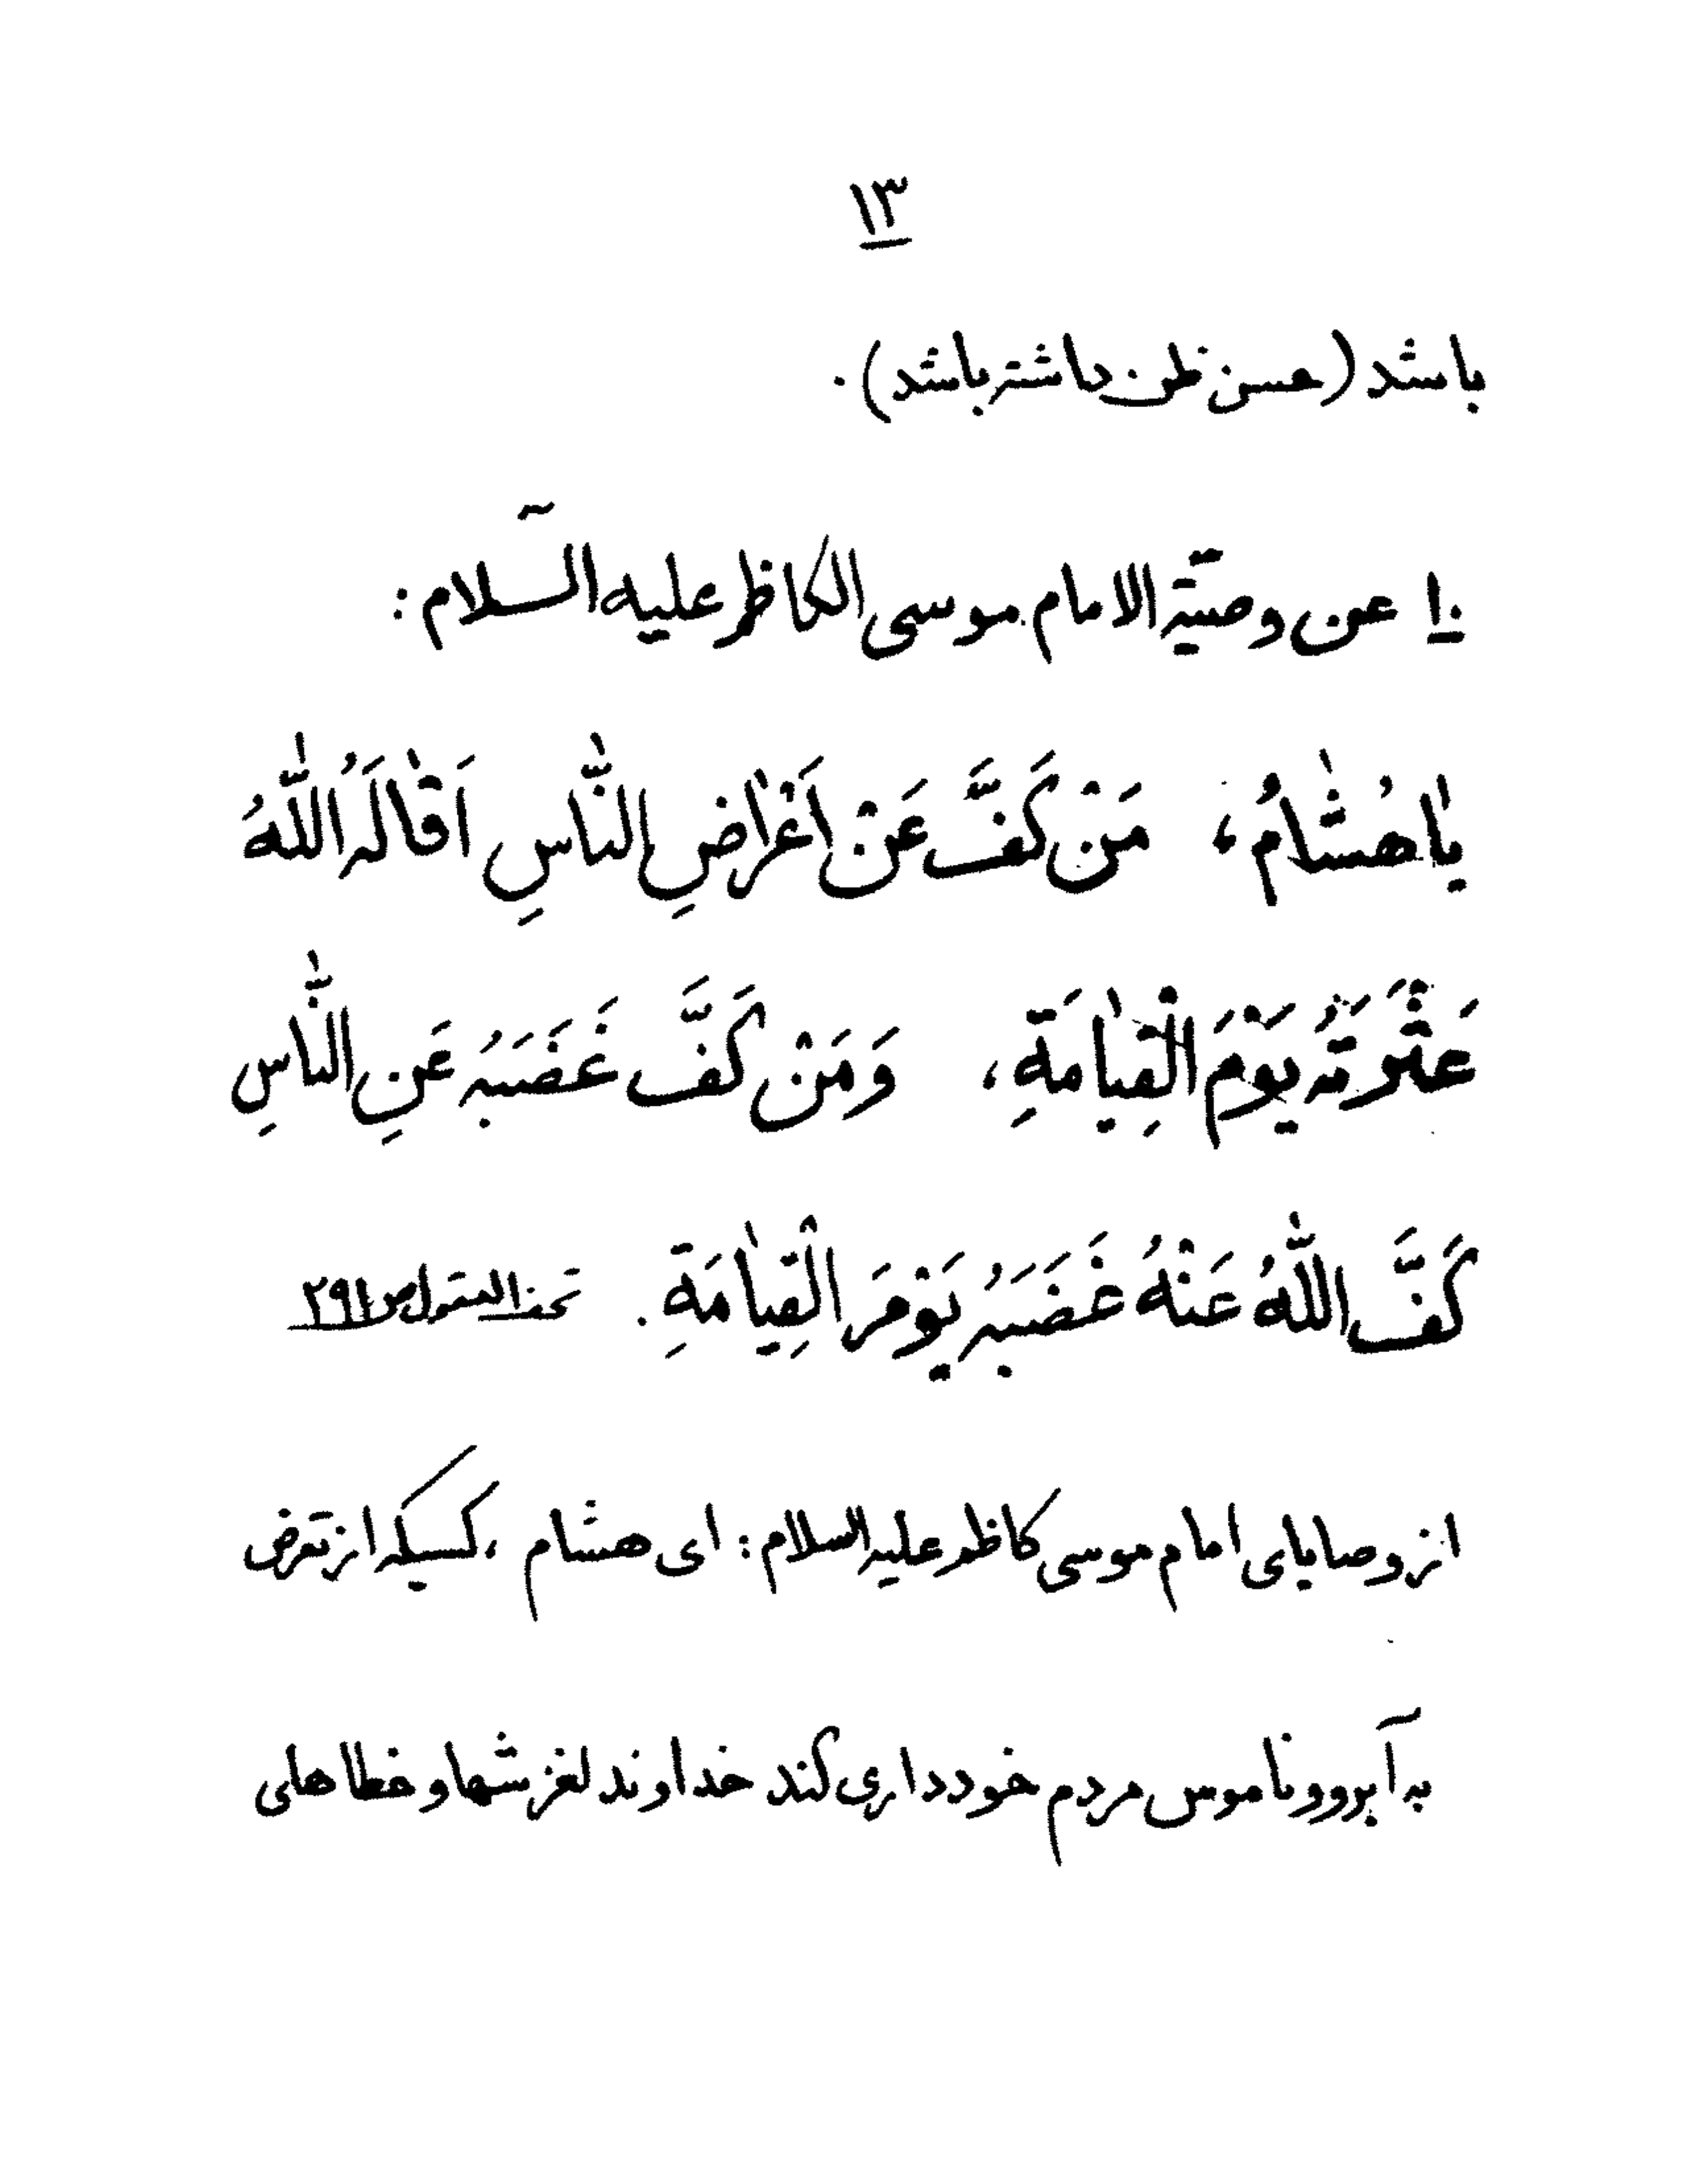 ۱۳
باشد (حسن ظن داشته باشد).
۱۰ عن وصیّة الامام موسی الکاظم علیه السّلام :
یٰا هُشٰامُ، مَنْ کَفَّ عَنْ اَعْرٰاضِ النّٰاسِ اَقٰالَهُ اللّٰهُ
عَثْرَتَهُ یَوْمَ الْقِیٰامَةِ، وَمَنْ کَفَّ غَضَبَهُ عَنِ النّٰاسِ
کَفَّ اللّٰهُ عَنْهُ غَضَبَهُ یَوْمَ الْقِیٰامَةِ. تحف العقول ص ۲۹۱
از وصایای امام موسی کاظم علیه السلام : ای هشام ، کسیکه از تعرض
به آبرو و ناموس مردم خودداری کند خداوند لغزشها و خطاهای